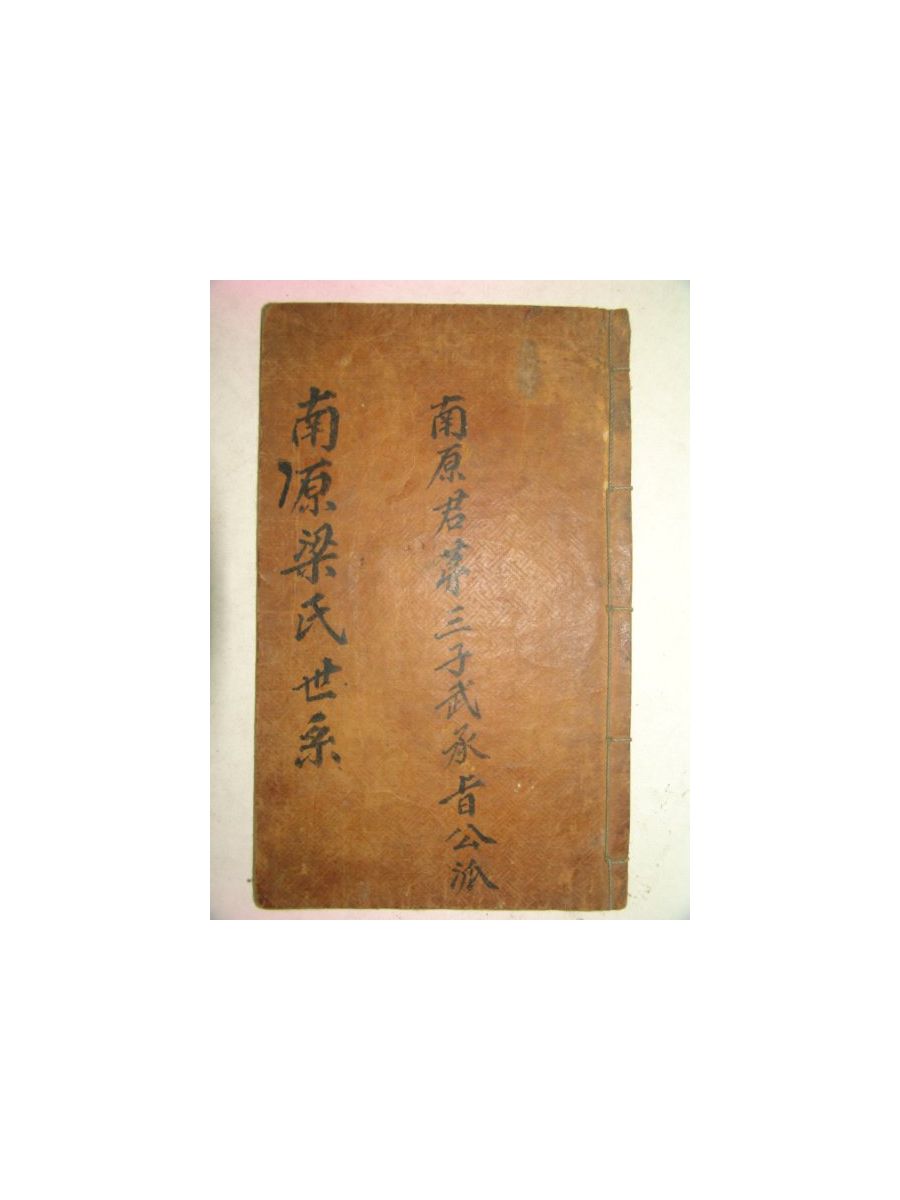 南原君苐三子武承旨公派
南原梁氏世系